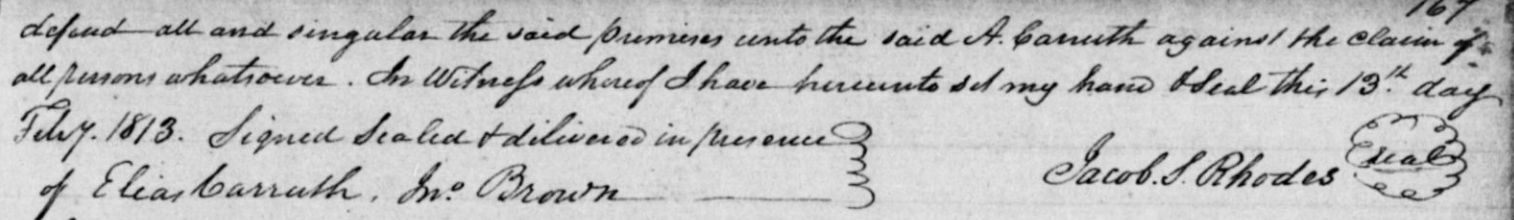 167
defend all and singular the said premises unto the said A. Carruth against the claim of
all persons whatsoever. In Witness whereof I have hereunto set my hand & Seal this 13.th day
Feby. 1813. Signed Sealed & delivered in presence
of Elias Carruth. Jno. Brown Jacob. S. Rhodes Seal